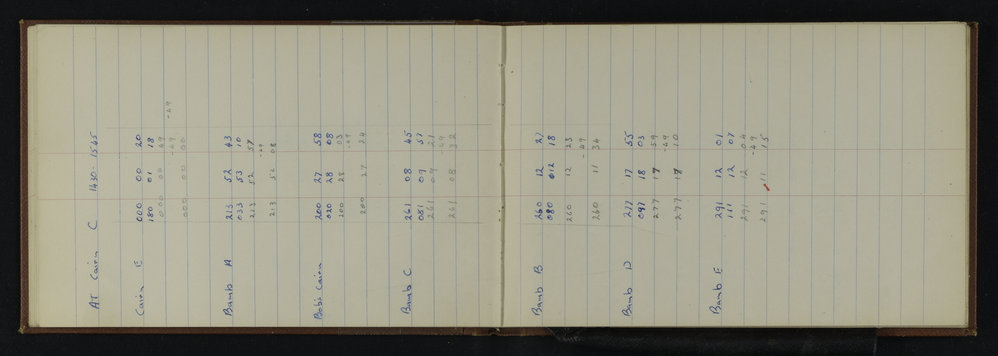 AT Cairn C 1430 - 1545
Cairn E 000 00 20
180 01 18
00 49
-49
000 00 00
-49
Bamb A 213 52 43
033 53 10
213 52 57
-49
213 52 08
Bobs Cairn 200 27 58
020 28 08
200 28 03
-49
200 27 24
Bamb C 261 08 45
081 09 57
261 09 21
-49
261 08 32
Bamb B 260 12 27
080 012 18
260 12 23
-49
260 11 34
Bamb D 277 17 55
097 18 03
277 17 59
-49
277 17 10
Bamb E 291 12 01
111 12 07
291 12 04
-49
291 11 15